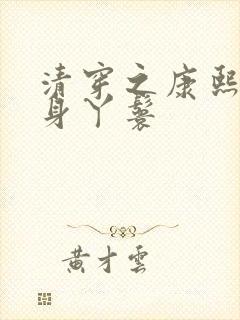 清穿之康熙
身丫鬟
黄才云